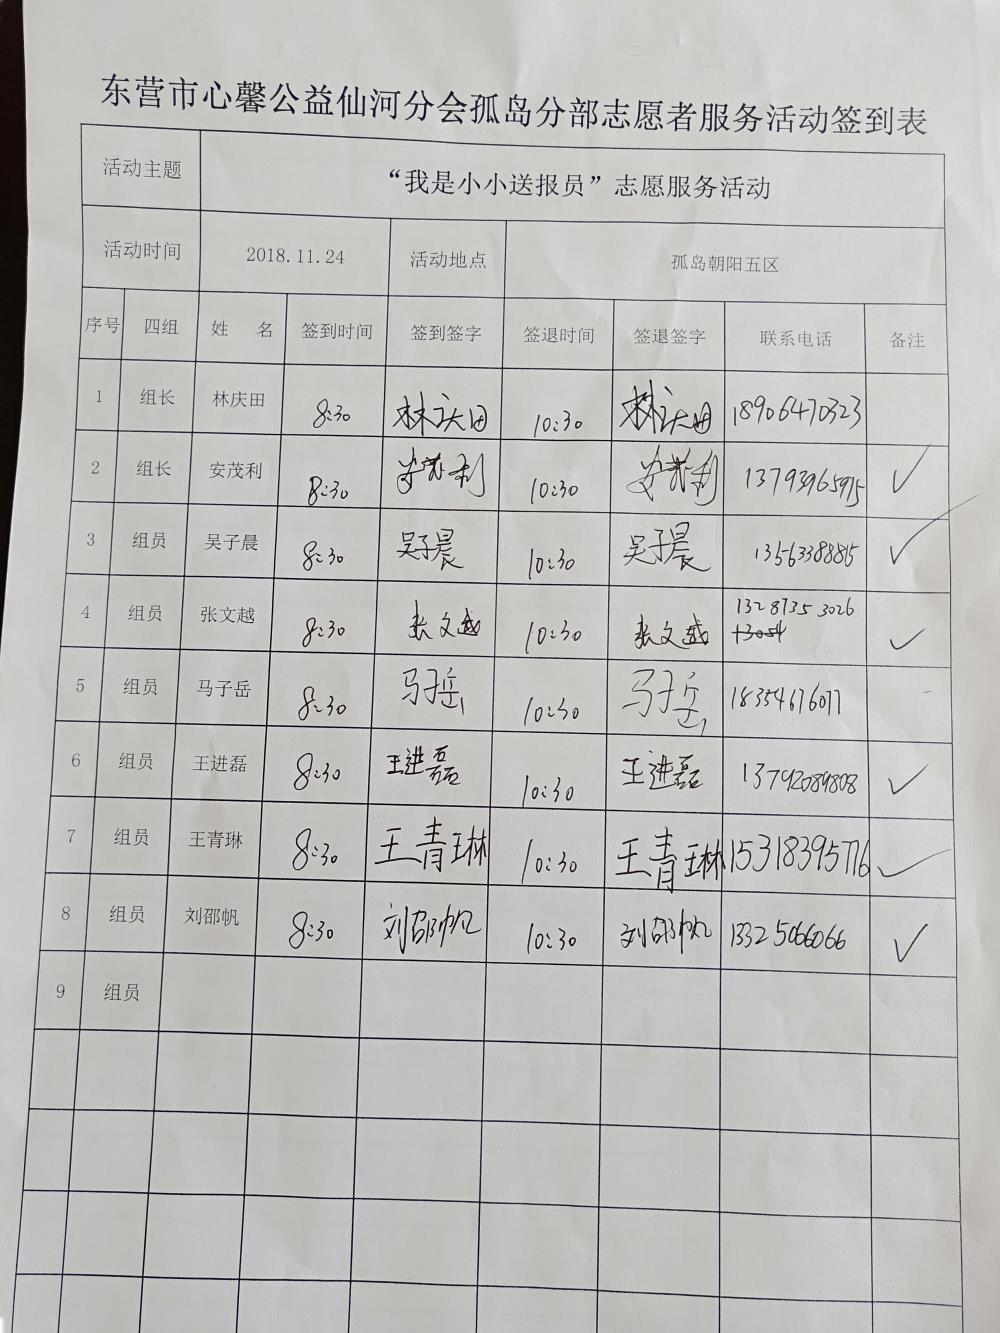 东营市心馨公益仙河分会孤岛分部志愿者服务活动签到表
活动主题 “我是小小送报员”志愿服务活动
活动时间 2018.11.24 活动地点 孤岛朝阳五区
序号 四组 姓 名 签到时间 签到签字 签退时间 签退签字 联系电话 备注
1 组长 林庆田 8:30 林庆田 10:30 林庆田 18906470323
2 组长 安茂利 8:30 安茂利 10:30 安茂利 13793965975 ✓
3 组员 吴子晨 8:30 吴子晨 10:30 吴子晨 1356338885 ✓
4 组员 张文越 8:30 张文越 10:30 张文越 13287353026 ✓
5 组员 马子岳 8:30 马子岳 10:30 马子岳 18354676077
6 组员 王进磊 8:30 王进磊 10:30 王进磊 13792089808 ✓
7 组员 王青琳 8:30 王青琳 10:30 王青琳 15318395776 ✓
8 组员 刘邵帆 8:30 刘邵帆 10:30 刘邵帆 13325066066 ✓
9 组员